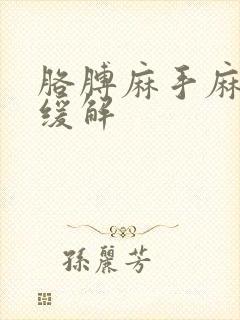 胳膊麻手麻
缓解
孫麗芳